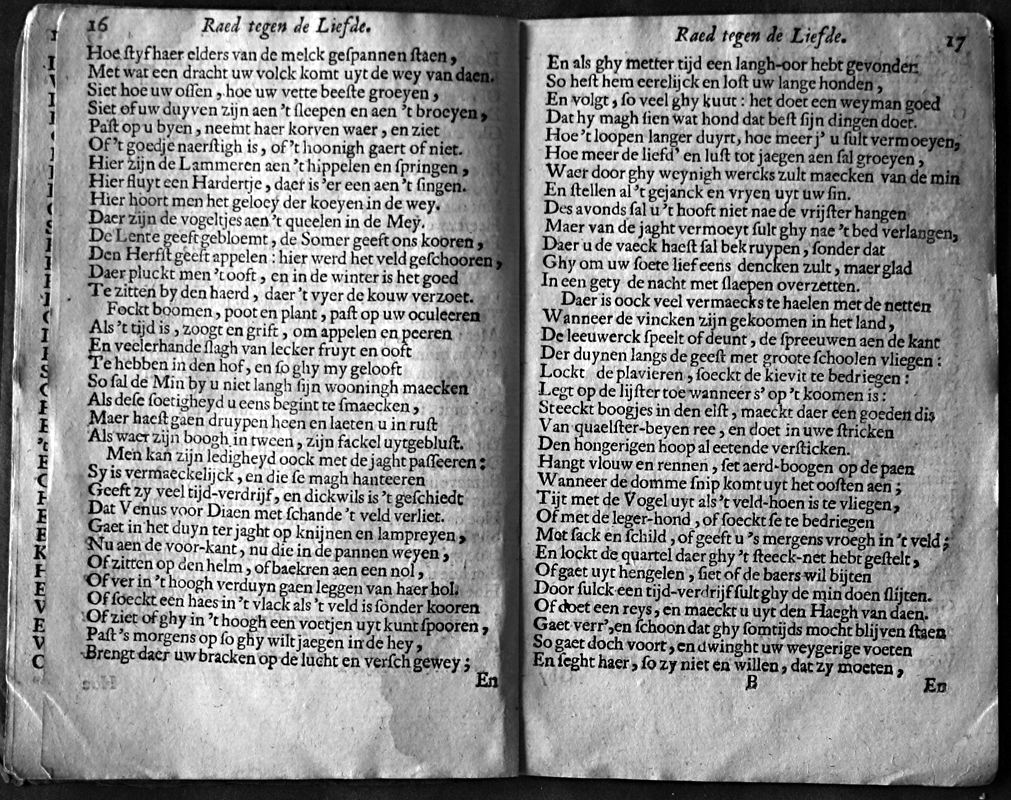 16 Raed tegen de Liefde.
Hoe ſtyf haer elders van de melck geſpannen ſtaen,
Met wat een dracht uw volck komt uyt de wey van daen.
Siet hoe uw oſſen, hoe uw vette beeſte groeyen,
Siet of uw duyven zijn aen 't ſleepen en aen 't broeyen,
Paſt op u byen, neemt haer korven waer, en ziet
Of 't goedje naerſtigh is, of 't hoonigh gaert of niet.
Hier zijn de Lammeren aen 't hippelen en ſpringen,
Hier fluyt een Hardertje, daer is 'er een aen 't ſingen.
Hier hoort men het geloey der koeyen in de wey.
Daer zijn de vogeltjes aen 't queelen in de Mey.
De Lente geeft gebloemt, de Somer geeft ons kooren,
Den Herfſt geeft appelen: hier werd het veld geſchooren,
Daer pluckt men 't ooft, en in de winter is het goed
Te zitten by den haerd, daer 't vyer de kouw verzoet.
Fockt boomen, poot en plant, paſt op uw oculeeren
Als 't tijd is, zoogt en grift, om appelen en peeren
En veelerhande ſlagh van lecker fruyt en ooft
Te hebben in den hof, en ſo ghy my gelooft
So ſal de Min by u niet langh ſijn wooningh maecken
Als deſe ſoetigheyd u eens begint te ſmaecken,
Maer haeſt gaen druypen heen en laeten u in ruſt
Als waer zijn boogh in tween, zijn fackel uytgebluſt.
Men kan zijn ledigheyd oock met de jaght paſſeeren:
Sy is vermaeckelijck, en die ſe magh hanteeren
Geeft zy veel tijd-verdrijf, en dickwils is 't geſchiedt
Dat Venus voor Diaen met ſchande 't veld verliet.
Gaet in het duyn ter jaght op knijnen en lampreyen,
Nu aen de voor-kant, nu die in de pannen weyen,
Of zitten op den helm, of baekren aen een nol,
Of ver in 't hoogh verduyn gaen leggen van haer hol.
Of ſoeckt een haes in 't vlack als 't veld is ſonder kooren
Of ziet of ghy in 't hoogh een voetjen uyt kunt ſpooren,
Paſt 's morgens op ſo ghy wilt jaegen in de hey,
Brengt daer uw bracken op de lucht en verſch gewey;
En
Raed tegen de Liefde. 17
En als ghy metter tijd een langh-oor hebt gevonden
So heſt hem eerelijck en loſt uw lange honden,
En volgt, ſo veel ghy kuut: het doet een weyman goed
Dat hy magh ſien wat hond dat beſt ſijn dingen doet.
Hoe 't loopen langer duyrt, hoe meer j' u ſult vermoeyen,
Hoe meer de liefd' en luſt tot jaegen aen ſal groeyen,
Waer door ghy weynigh wercks zult maecken van de min
En ſtellen al 't gejanck en vryen uyt uw ſin.
Des avonds ſal u 't hooft niet nae de vrijſter hangen
Maer van de jaght vermoeyt ſult ghy nae 't bed verlangen,
Daer u de vaeck haeſt ſal bekruypen, ſonder dat
Ghy om uw ſoete lief eens dencken zult, maer glad
In een gety de nacht met ſlaepen overzetten.
Daer is oock veel vermaecks te haelen met de netten
Wanneer de vincken zijn gekoomen in het land,
De leeuwerck ſpeelt of deunt, de ſpreeuwen aen de kant
Der duynen langs de geeſt met groote ſchoolen vliegen:
Lockt de plavieren, ſoeckt de kievit te bedriegen:
Legt op de lijſter toe wanneer s' op 't koomen is:
Steeckt boogjes in den elſt, maeckt daer een goeden dis
Van quaelſter-beyen ree, en doet in uwe ſtricken
Den hongerigen hoop al eetende verſticken.
Hangt vlouw en rennen, ſet aerd-boogen op de paen
Wanneer de domme ſnip komt uyt het ooſten aen;
Tijt met de Vogel uyt als 't veld-hoen is te vliegen,
Of met de leger-hond, of ſoeckt ſe te bedriegen
Met ſack en ſchild, of geeft u 's mergens vroegh in 't veld;
En lockt de quartel daer ghy 't ſteeck-net hebt geſtelt,
Of gaet uyt hengelen, ſiet of de baers wil bijten
Door ſulck een tijd-verdrijf ſult ghy de min doen ſlijten.
Of doet een reys, en maeckt u uyt den Haegh van daen.
Gaet verr', en ſchoon dat ghy ſomtijds mocht blijven ſtaen
So gaet doch voort, en dwinght uw weygerige voeten
En ſeght haer, ſo zy niet en willen, dat zy moeten,
B En